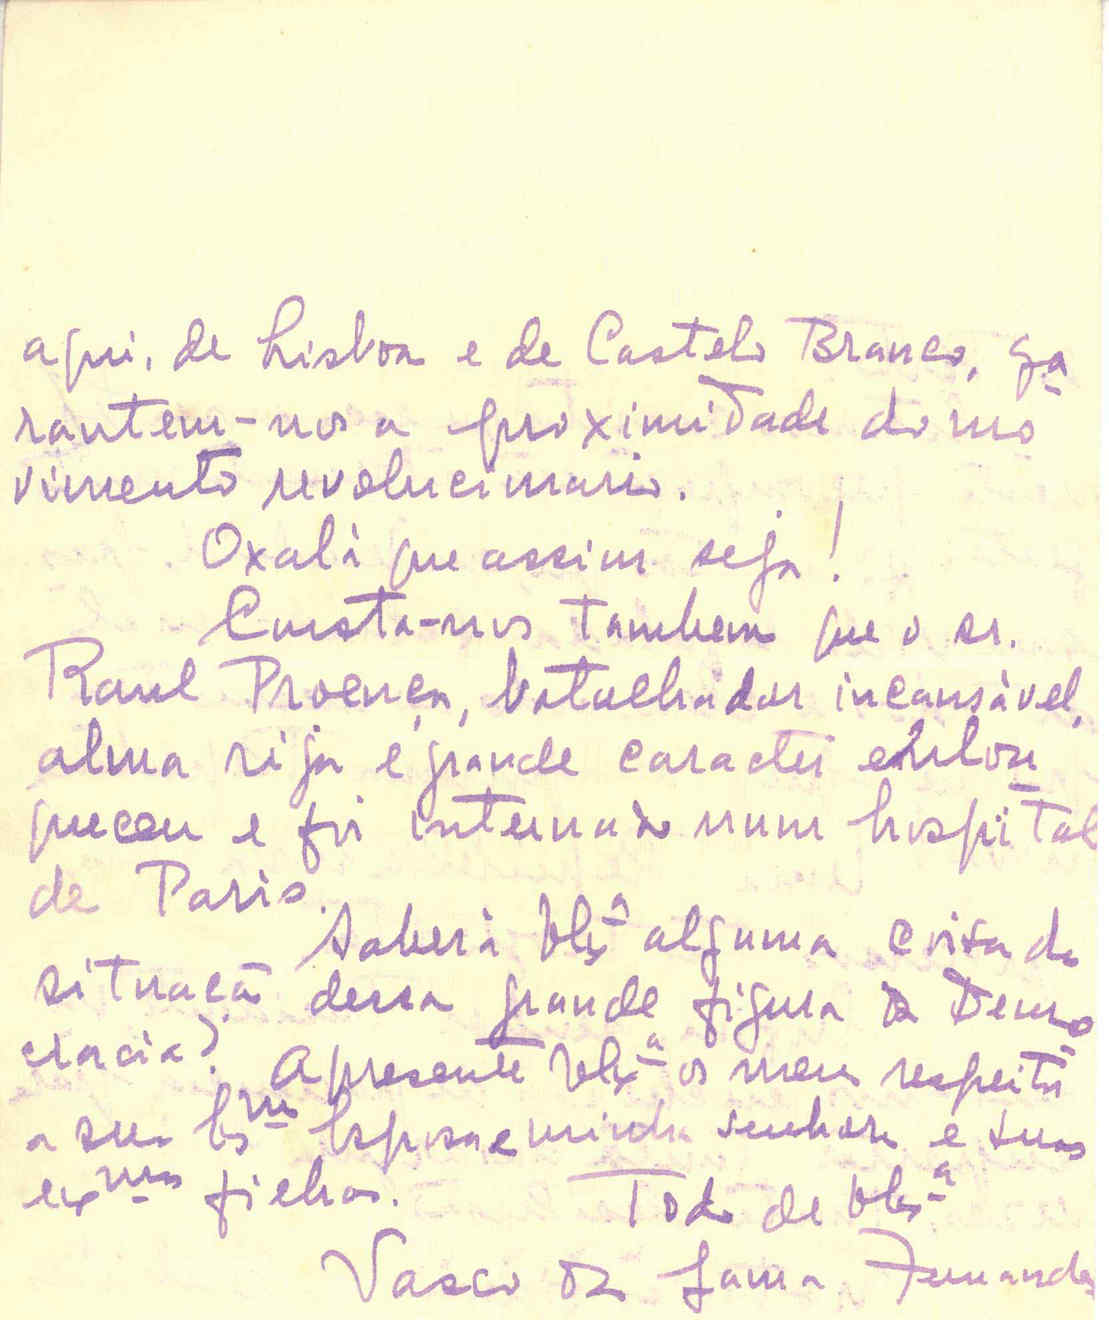 aqui, de Lisboa e de Castelo Branco, ga
rantem-nos a proximidade do mo
vimento revolucionario.
Oxalá que assim seja!
Consta-nos tambem que o sr.
Raul Proença, batalhador incansável,
alma rija e grande caracter enlou
queceu e foi internado num hospital
de Paris.
Saberá V. Ex.ª alguma coisa da
situação dessa grande figura da Demo
cracia?
Apresente V. Ex.ª os meus respeitos
a sua Ex.ma Esposa e minha senhora e suas
ex.mas filhas.
Todo de V. Ex.ª
Vasco da Gama Fernandes